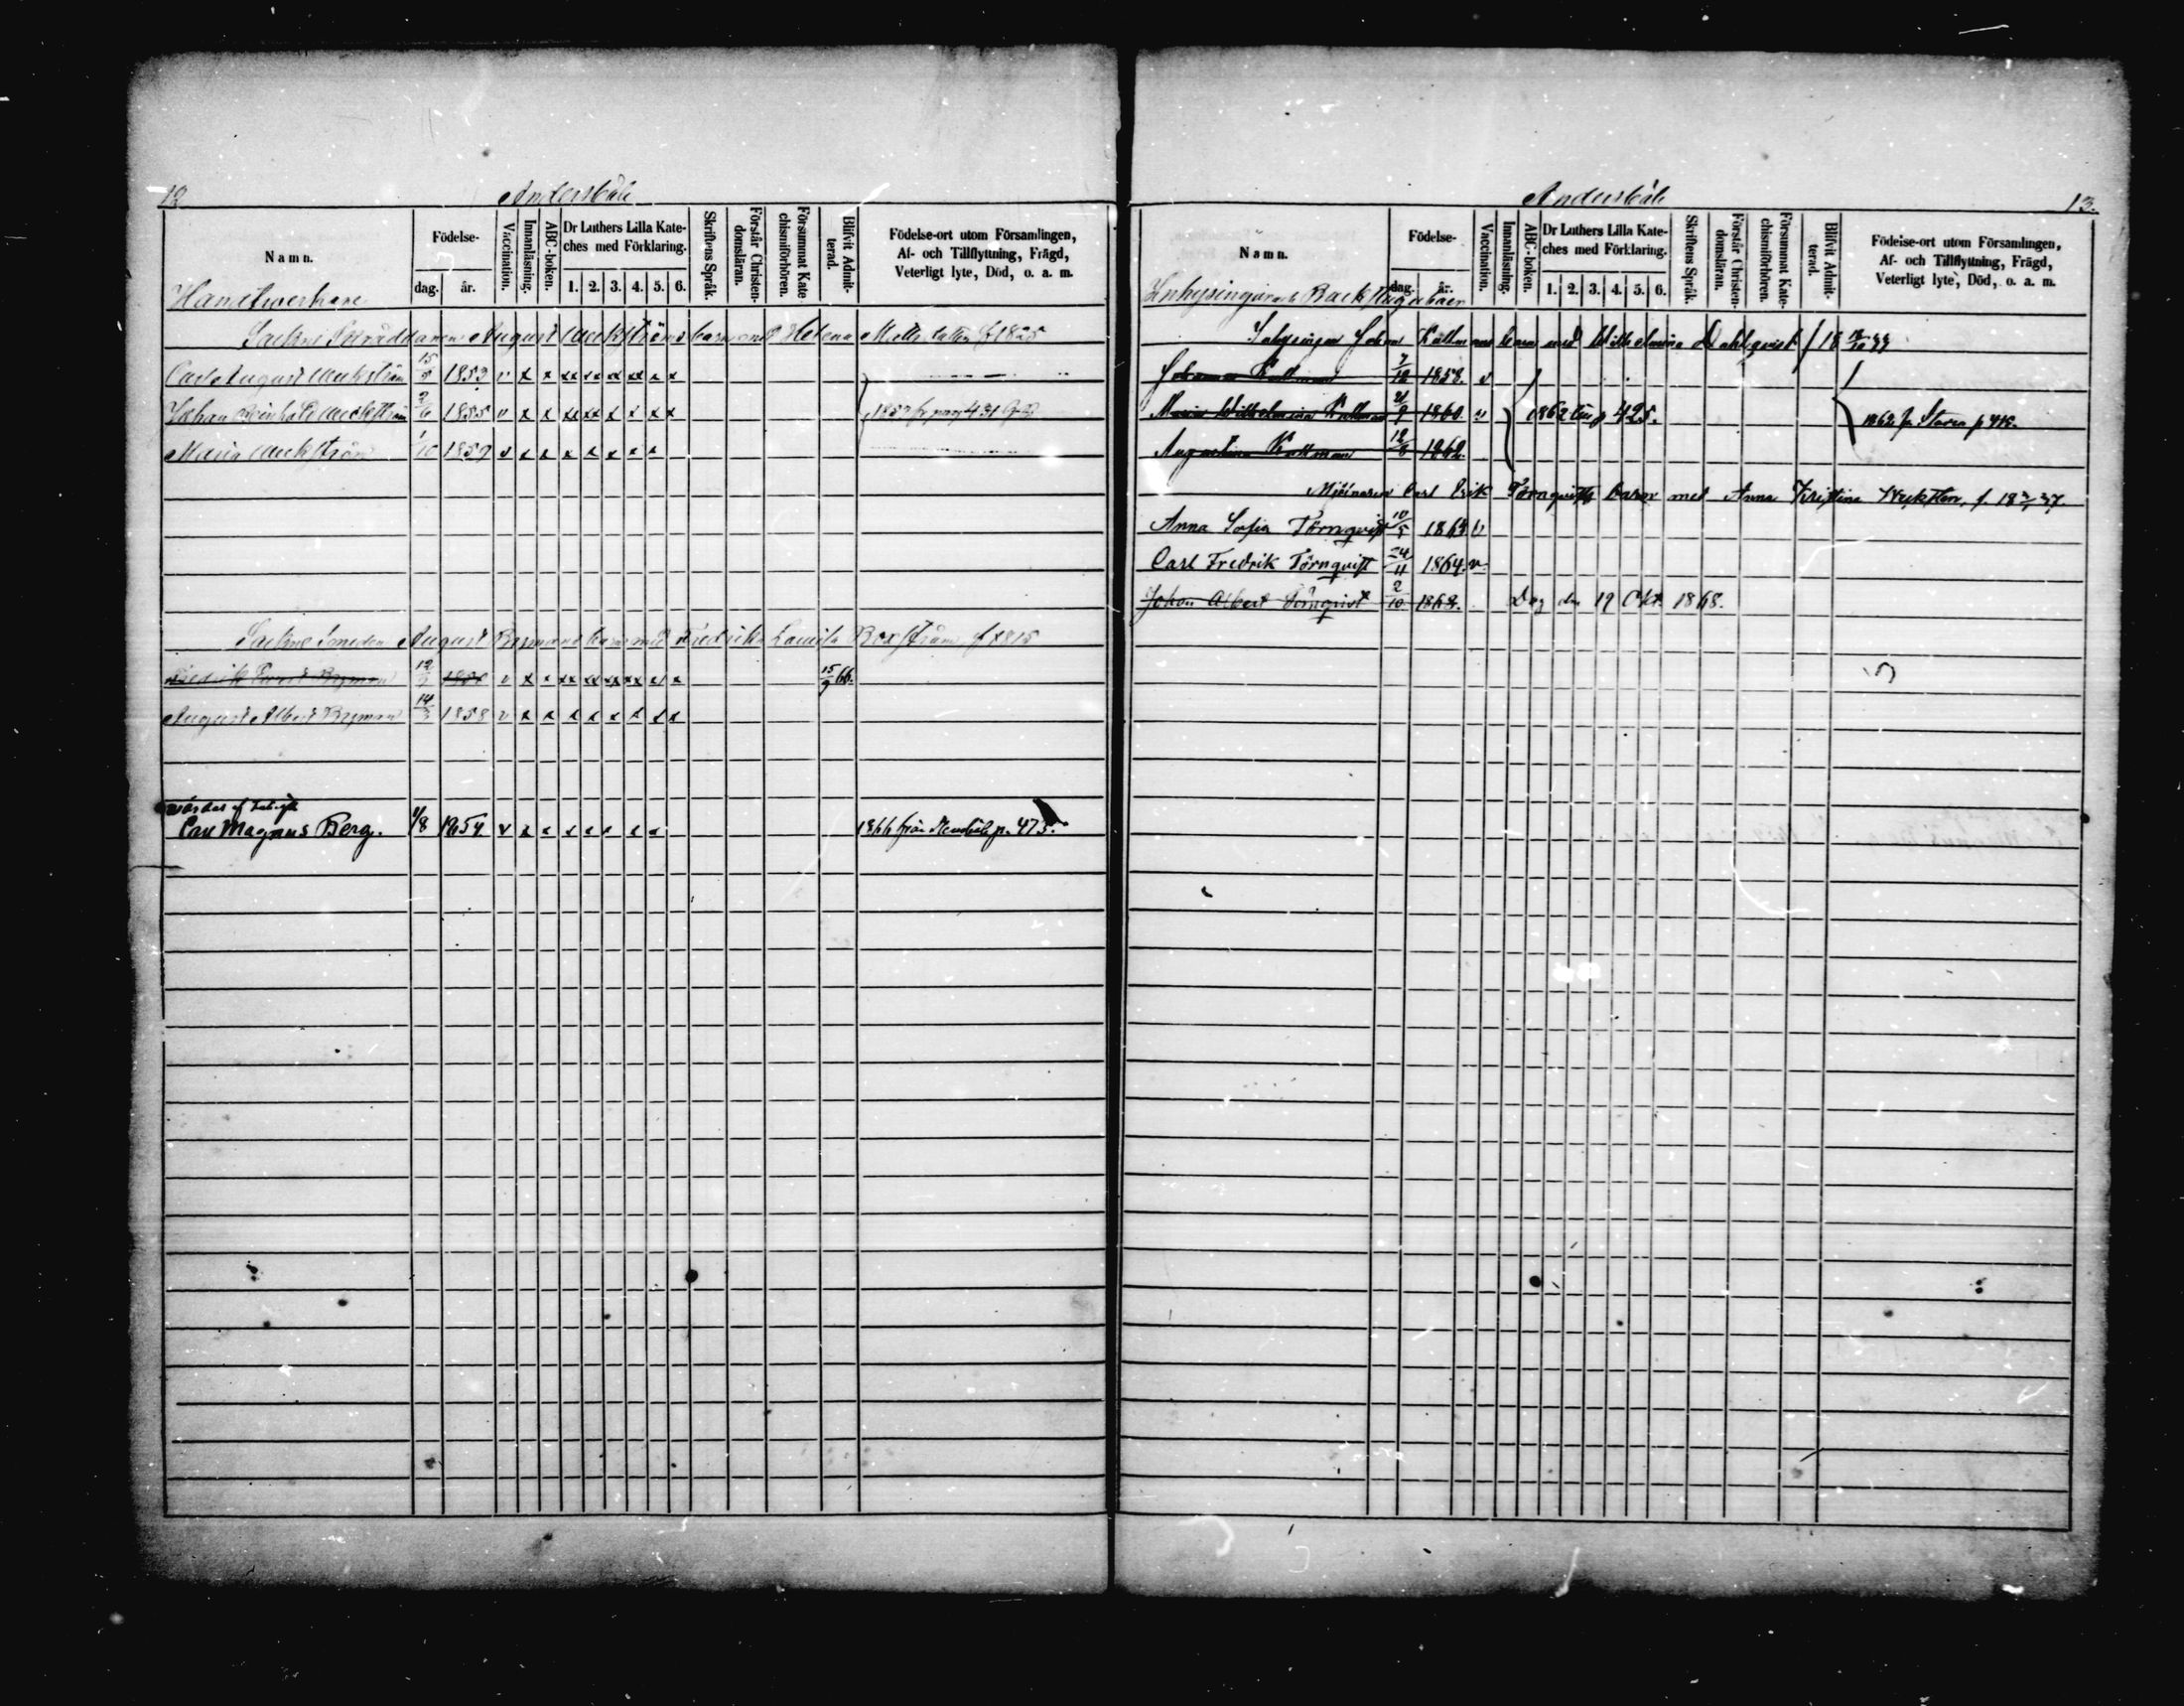 12 Andersböle
Namn. Födelse- dag. år. Vaccination. Innanläsning. ABC-boken. Dr Luthers Lilla Kate-ches med Förklaring. 1. 2. 3. 4. 5. 6. Skriftens Språk. Förstår Christen-domsläran. Försummat Kate-chismiförhören. Blifvit Admit-terad. Födelse-ort utom Församlingen, Af- och Tillflyttning, Frägd, Veterligt lyte, Död, o. a. m.
Handtwerkare
Sockne Skräddaren August barn med Helena Matts dotter f 1825
Carl August 15/8 1853 v x x xx xx xx xx x x
Johan Reinhold 2/6 1855 v x x xx xx x x x x 1857 fr pag 431
Maria 1/10 1859 v x x x x x x x
Sockne Smeden August Bergmans barn med Fredrika Lovisa Boxström f 1815
Fredrik Bergman 12 v x x xx xx xx xx x x 15/9 66.
August Albert Bergman 14/3 1858 v x x x x x x x x
Carl Magnus Berg. 1/8 1854 v x x x x x x x 1866 från p. 473.
Andersböle 13.
Namn. Födelse- dag. år. Vaccination. Innanläsning. ABC-boken. Dr Luthers Lilla Kate-ches med Förklaring. 1. 2. 3. 4. 5. 6. Skriftens Språk. Förstår Christen-domsläran. Försummat Kate-chismiförhören. Blifvit Admit-terad. Födelse-ort utom Församlingen, Af- och Tillflyttning, Frägd, Veterligt lyte, Död, o. a. m.
Inhysingar och Backstugubaer
Inhysingen Johan Källmans barn med Wilhelmina Dahlqvist f 18 33
Johannes Källman 7/12 1858. v
Maria Wilhelmina Källman 21/9 1860 v 1862 till p 425. 1862 fr
Augustina Källman 12/8 1862.
Mjölnaren Carl Erik Törnqvists barn med Anna Kristina f. 18 37.
Anna Sofia Törnqvist 10/5 1863 v
Carl Fredrik Törnqvist 24/11 1864. v
Johan Albert Törnqvist 2/10 1868. Dog den 19 Okt. 1868.